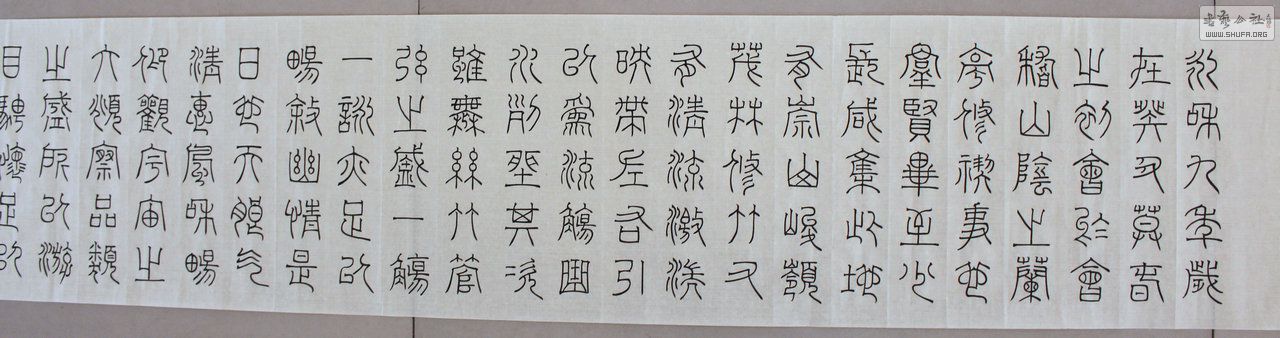 永和九年歲
在癸丑莫春
之初會於會
稽山陰之蘭
亭修禊事也
羣賢畢至少
長咸集此地
有崇山峻嶺
茂林修竹又
有清流激湍
映帶左右引
以為流觴曲
水列坐其次
雖無絲竹管
弦之盛一觴
一詠亦足以
暢敘幽情是
日也天朗氣
清惠風和暢
仰觀宇宙之
大俯察品類
之盛所以游
目騁懷足以
书艺公社
WWW.SHUFA.ORG